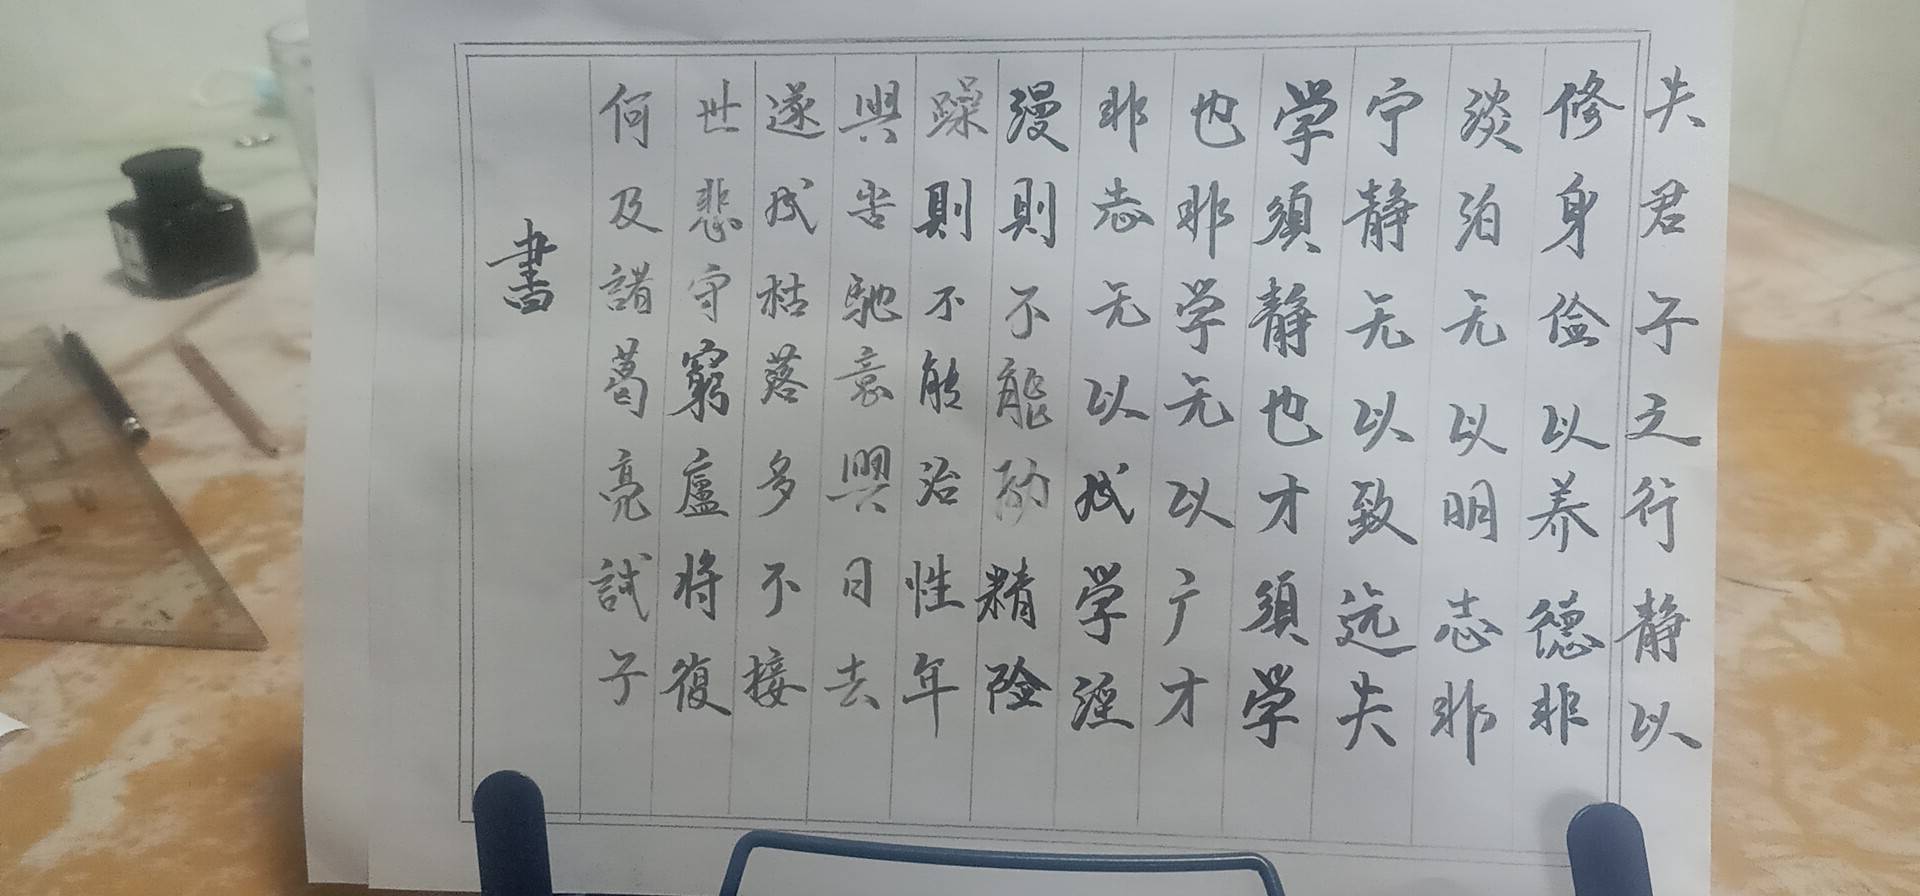 夫君子之行静以
修身俭以养德非
淡泊无以明志非
宁静无以致远夫
学須静也才須学
也非学无以广才
非志无以成学淫
漫則不能励精险
躁則不能治性年
與旹馳意與日去
遂成枯落多不接
世悲守窮廬将復
何及諸葛亮誡子
書